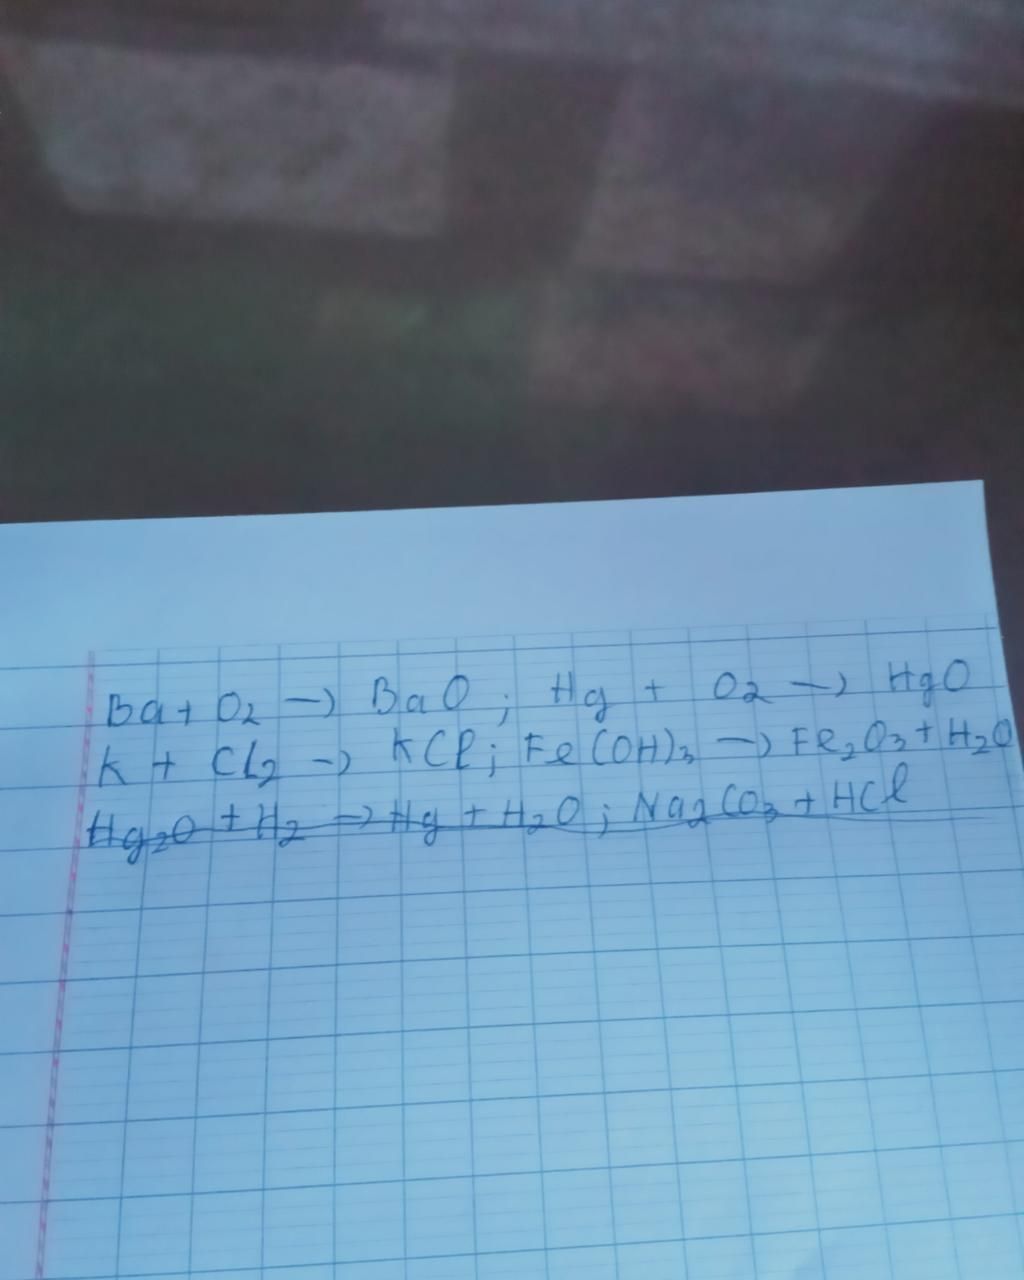 Ba + O₂ → BaO ; Hg + O₂ → HgO
K + Cl₂ → KCl ; Fe(OH)₃ → Fe₂O₃ + H₂O
Hg₂O + H₂ → Hg + H₂O ; Na₂CO₃ + HCl